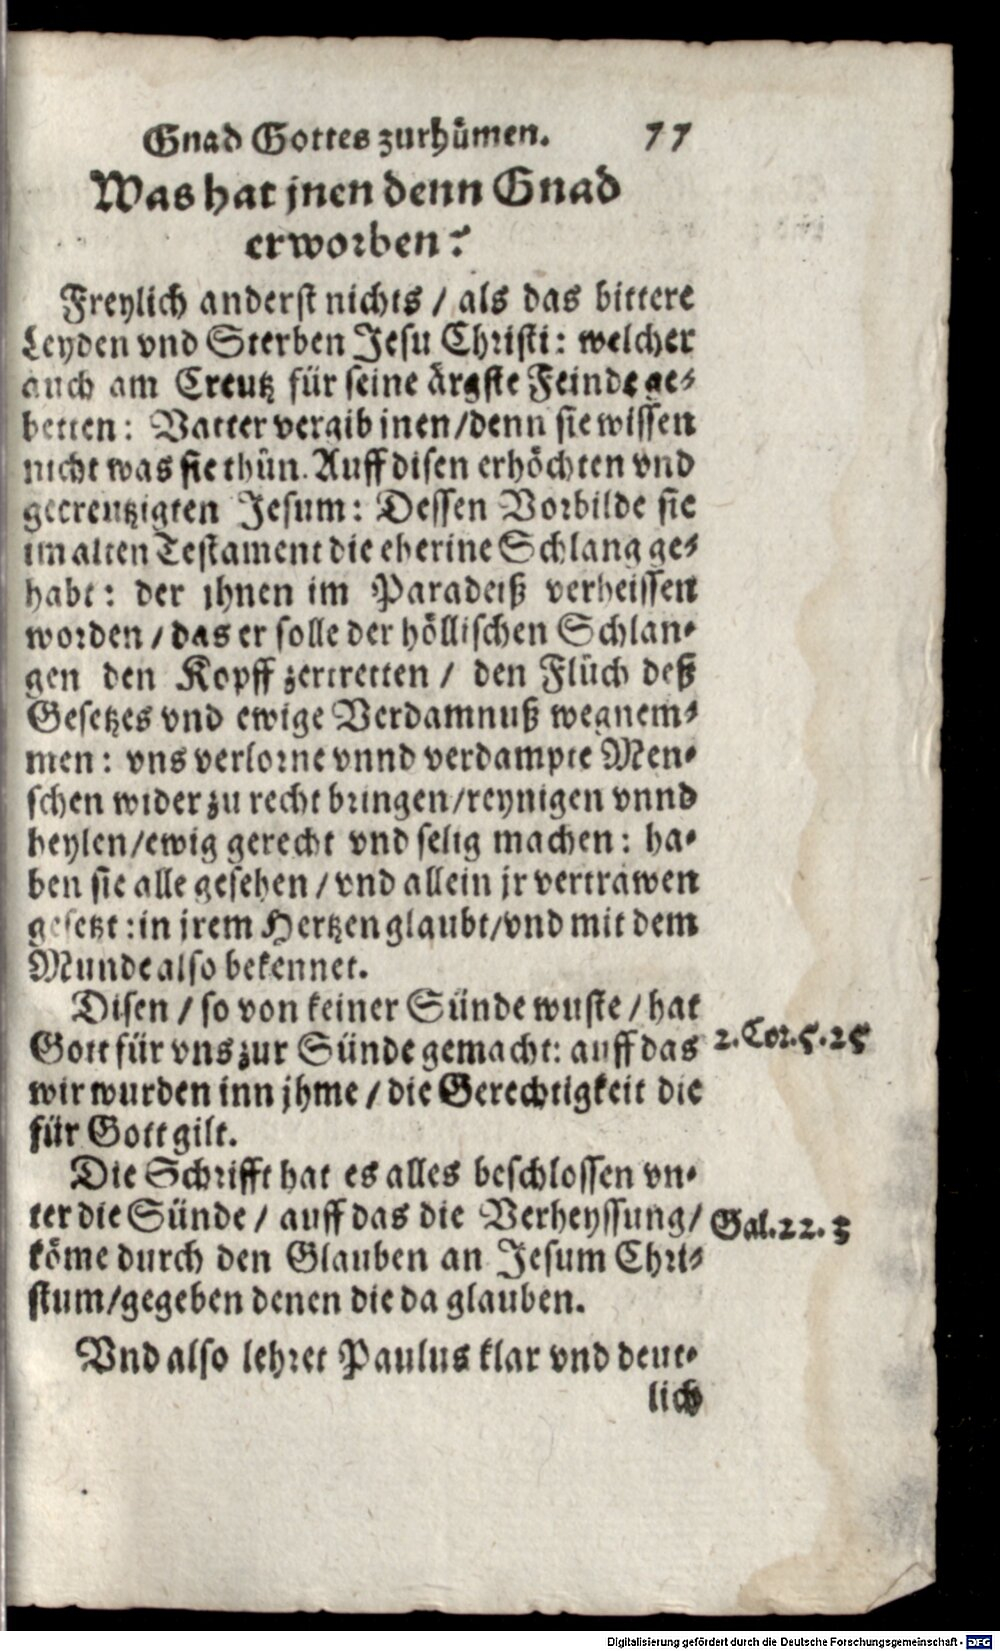 Gnad Gottes zurhümen. 77
Was hat jnen denn Gnad
erworben?
Freylich anderst nichts / als das bittere
Leyden vnd Sterben Jesu Christi: welcher
auch am Creutz für seine ärgste Feinde ge-
betten: Vatter vergib inen/denn sie wissen
nicht was sie thün. Auff disen erhöchten vnd
gecreutzigten Jesum: Dessen Vorbilde sie
im alten Testament die eherine Schlang ge-
habt: der ihnen im Paradeiß verheissen
worden / das er solle der höllischen Schlan-
gen den Kopff zertretten / den Flüch deß
Gesetzes vnd ewige Verdamnuß wegnem-
men: vns verlorne vnnd verdampte Men-
schen wider zu recht bringen/reynigen vnnd
heylen/ewig gerecht vnd selig machen: ha-
ben sie alle gesehen / vnd allein jr vertrawen
gesetzt: in jrem Hertzen glaubt/vnd mit dem
Munde also bekennet.
Disen / so von keiner Sünde wuste / hat
Gott für vns zur Sünde gemacht: auff das
2. Cor. 5. 25
wir wurden inn jhme / die Gerechtigkeit die
für Gott gilt.
Die Schrifft hat es alles beschlossen vn-
ter die Sünde / auff das die Verheyssung/
Gal. 22. 3
köme durch den Glauben an Jesum Chri-
stum/gegeben denen die da glauben.
Vnd also lehret Paulus klar vnd deut-
lich
Digitalisierung gefördert durch die Deutsche Forschungsgemeinschaft - DFG